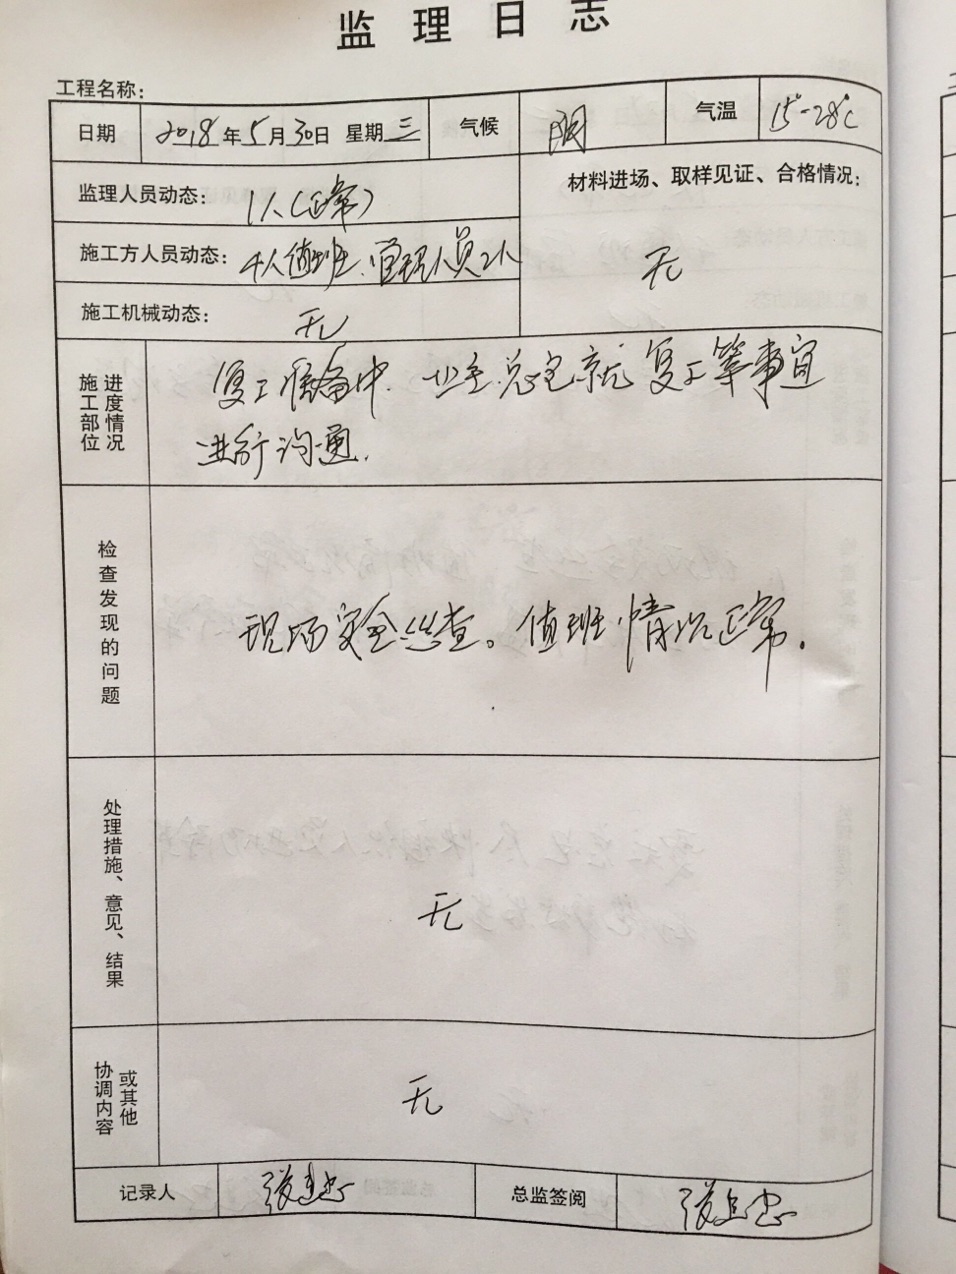 监理日志
工程名称:
日期 2018年5月30日 星期三 气候 阴 气温 15°-28℃
监理人员动态: 1人(正常)
材料进场、取样见证、合格情况:
无
施工方人员动态: 值班、管理人员2人
施工机械动态: 无
施工部位进度情况
复工准备中. 业主、总包就复工等事宜
进行沟通.
检查发现的问题
现场安全巡查。值班情况正常.
处理措施、意见、结果
无
协调内容或其他
无
记录人 总监签阅